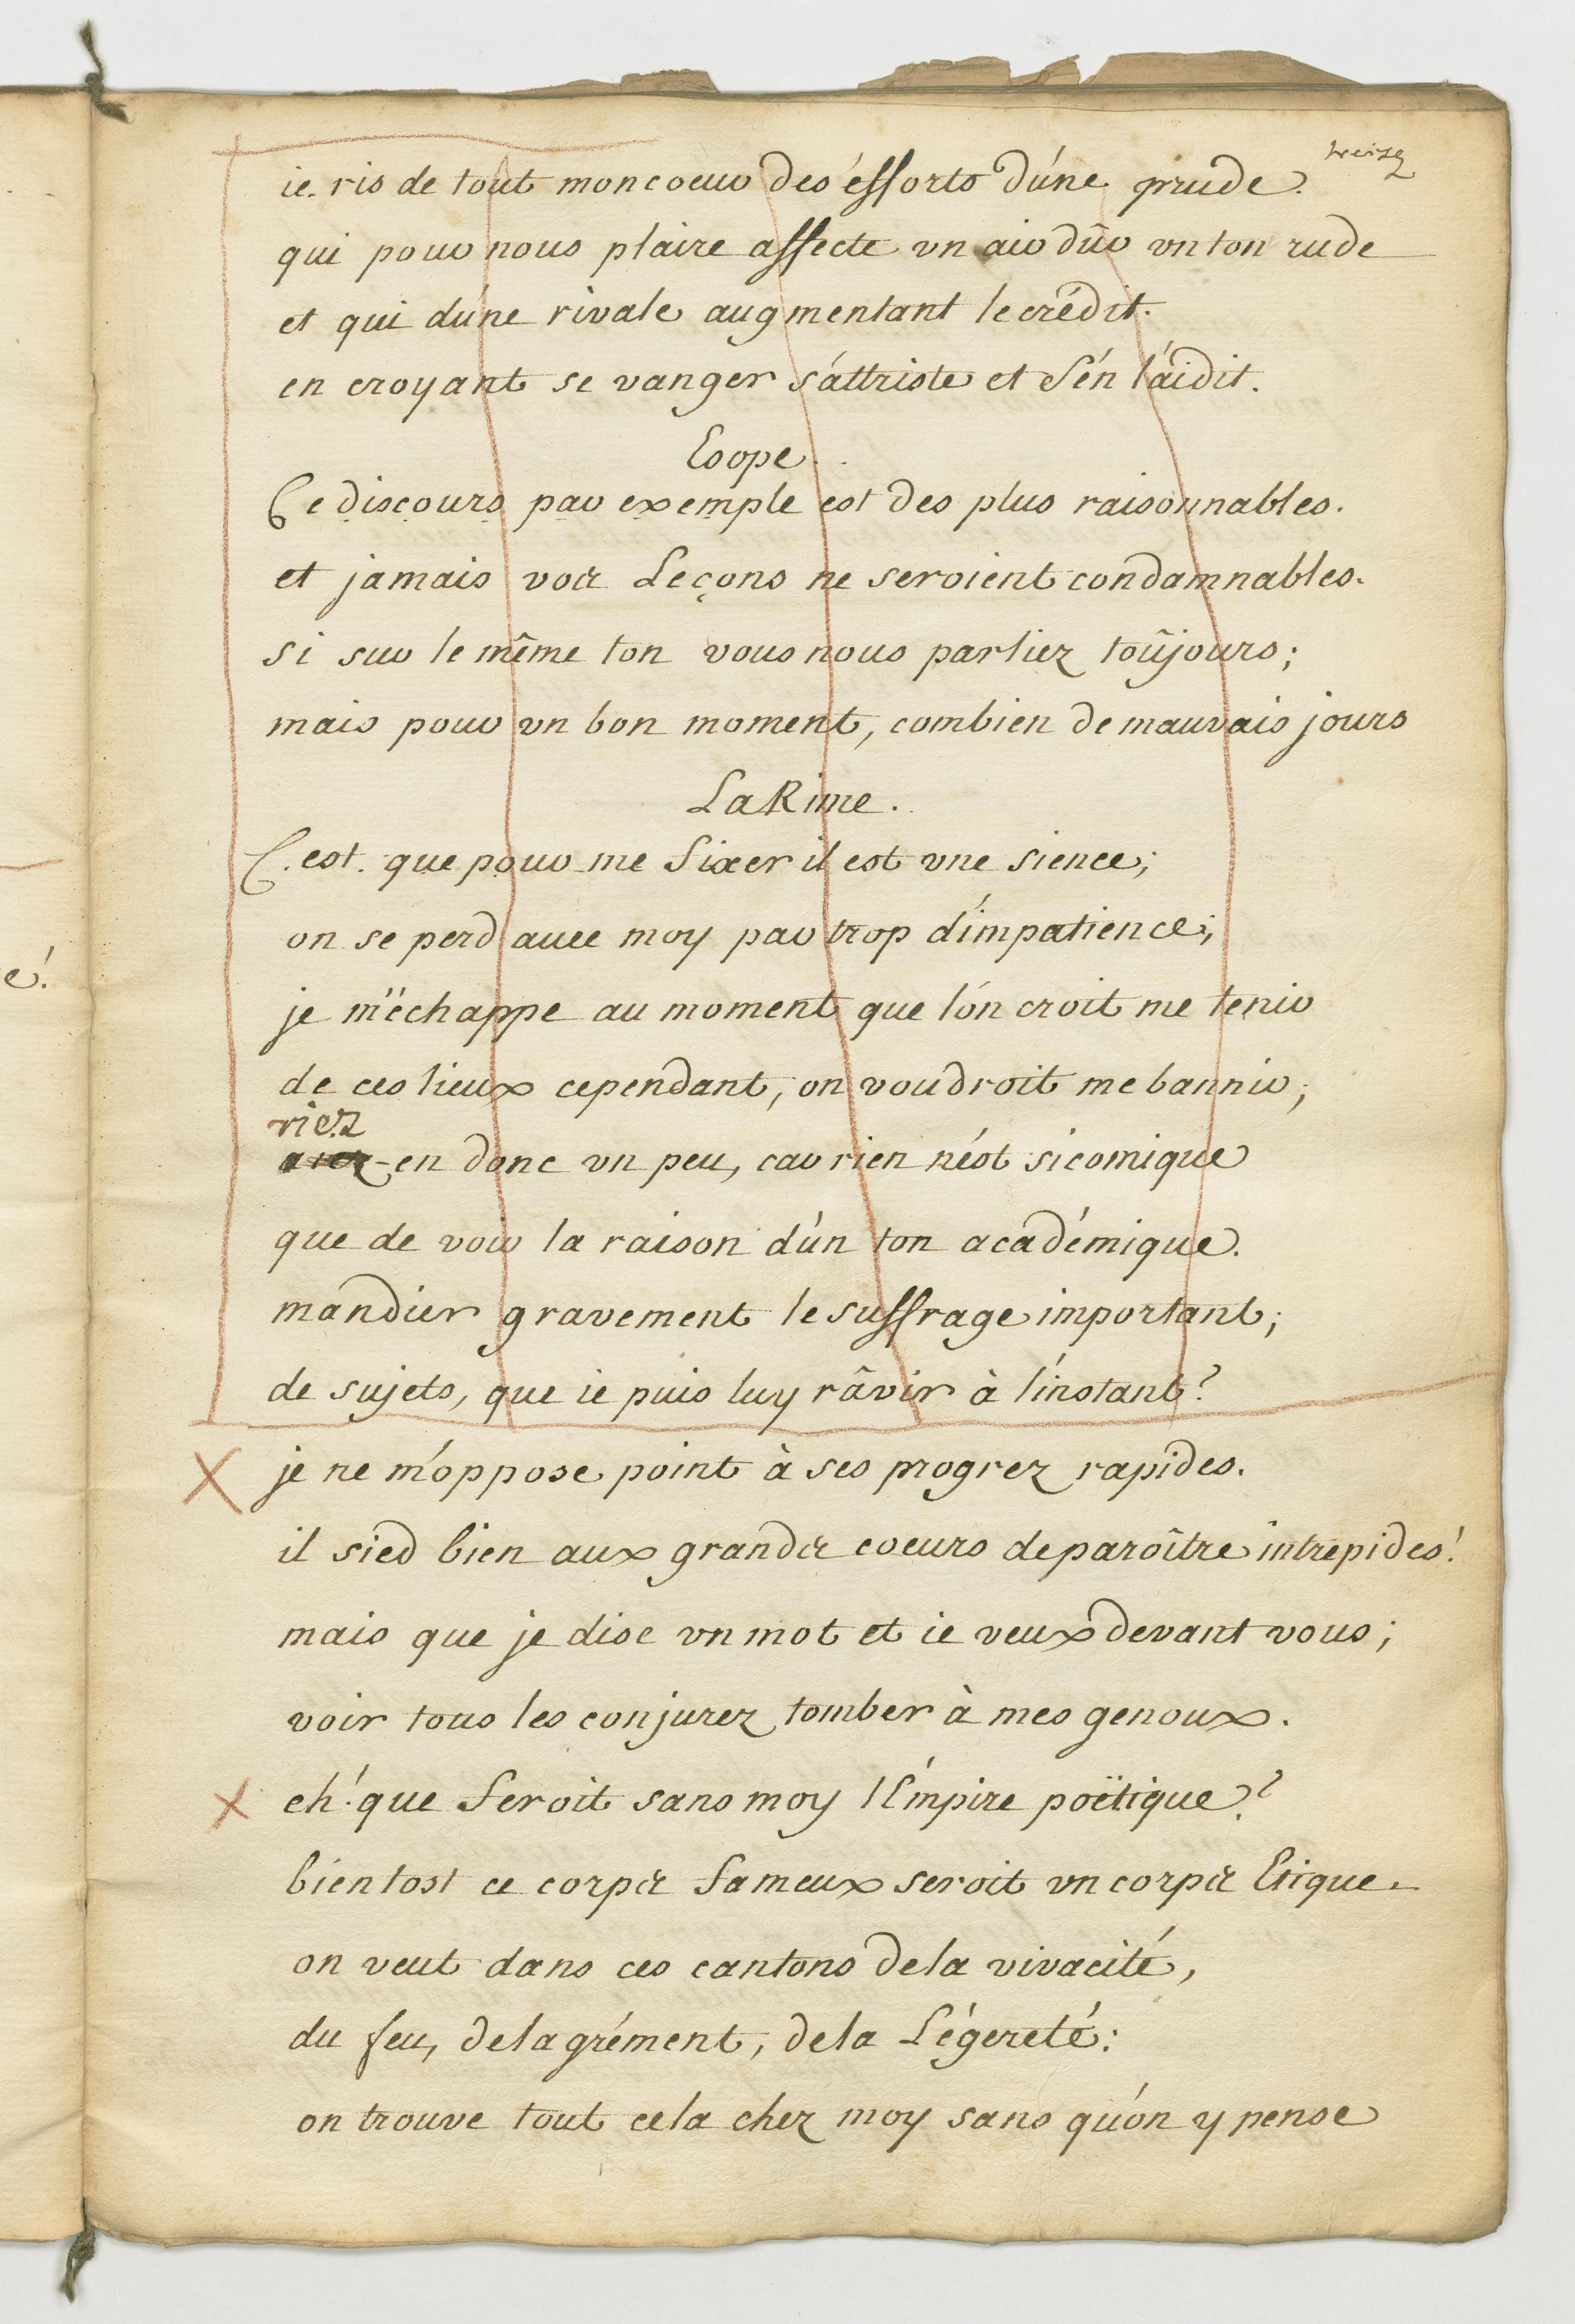 treize
ie ris de tout mon coeur des éfforts d'úne prude.
qui pour nous plaire affecte vn air dûr vn ton rude
et qui d'úne rivale augmentant le crédit.
en croyant se vanger s'áttriste et s'én láidit.
Esope.
Ce discours par exemple est des plus raisonnables.
et jamais vos Leçons ne seroient condamnables.
si sur le même ton vous nous parliez toûjours;
mais pour vn bon moment, combien de mauvais jours
La Rime.
C'est que pour me fixer il est vne sience;
on se perd avec moy par trop d'ímpatience;
je m'échappe au moment que l'ón croit me tenir
de ces lieux cependant, on voudroit me bannir;
riez
-en donc vn peu, car rien n'ést si comique
que de voir la raison d'ún ton académique.
mandier gravement le suffrage important;
de sujets, que ie puis luy râvir à l'ínstant?
je ne m'óppose point à ses progrez rapides.
il sied bien aux grands coeurs de parôître intrepides!
mais que je dise vn mot et ie veux devant vous;
voir tous les conjurez tomber à mes genoux.
eh! que feroit sans moy l'Émpire poëtique?
bientost ce corps fameux seroit vn corps Etique.
on veut dans ces cantons de la vivacité,
du feu, de lagrément, de la Légereté:
on trouve tout cela chez moy sans qu'ón y pense
é!